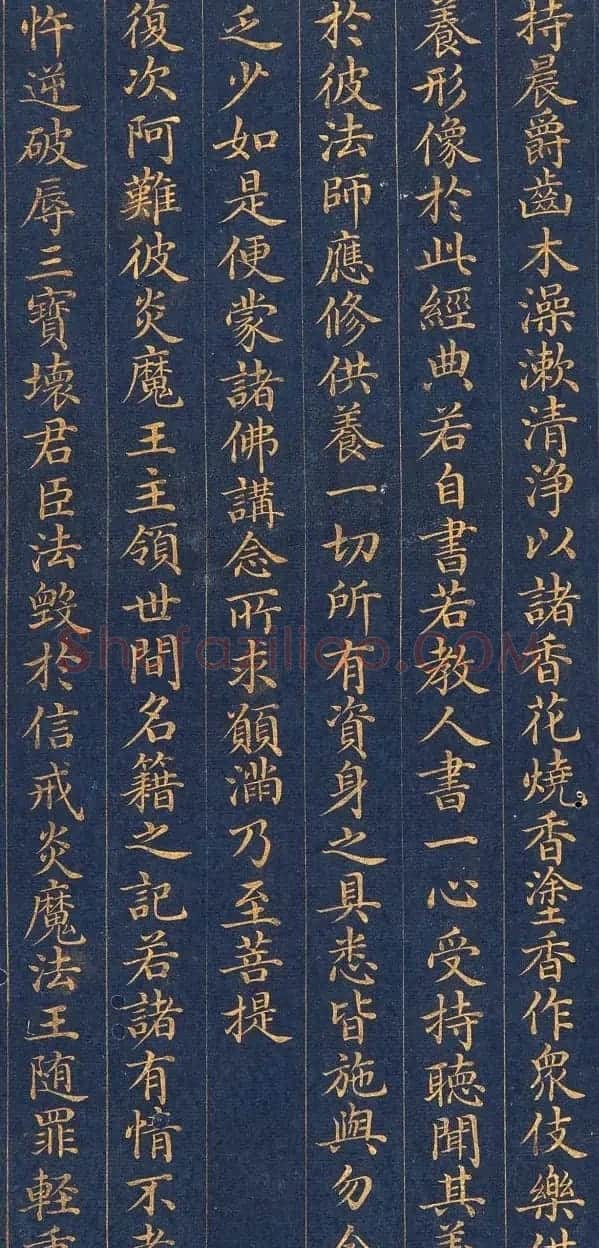 持晨爵齒木澡漱清淨以諸香花燒香塗香作衆伎樂供
養形像於此經典若自書若教人書一心受持聴聞其義
於彼法師應修供養一切所有資身之具悉皆施與勿令
乏少如是便蒙諸佛講念所求願滿乃至菩提
復次阿難彼炎魔王主領世間名籍之記若諸有情不孝
忤逆破辱三寶壞君臣法毀於信戒炎魔法王随罪軽重
Shufaziliao.COM